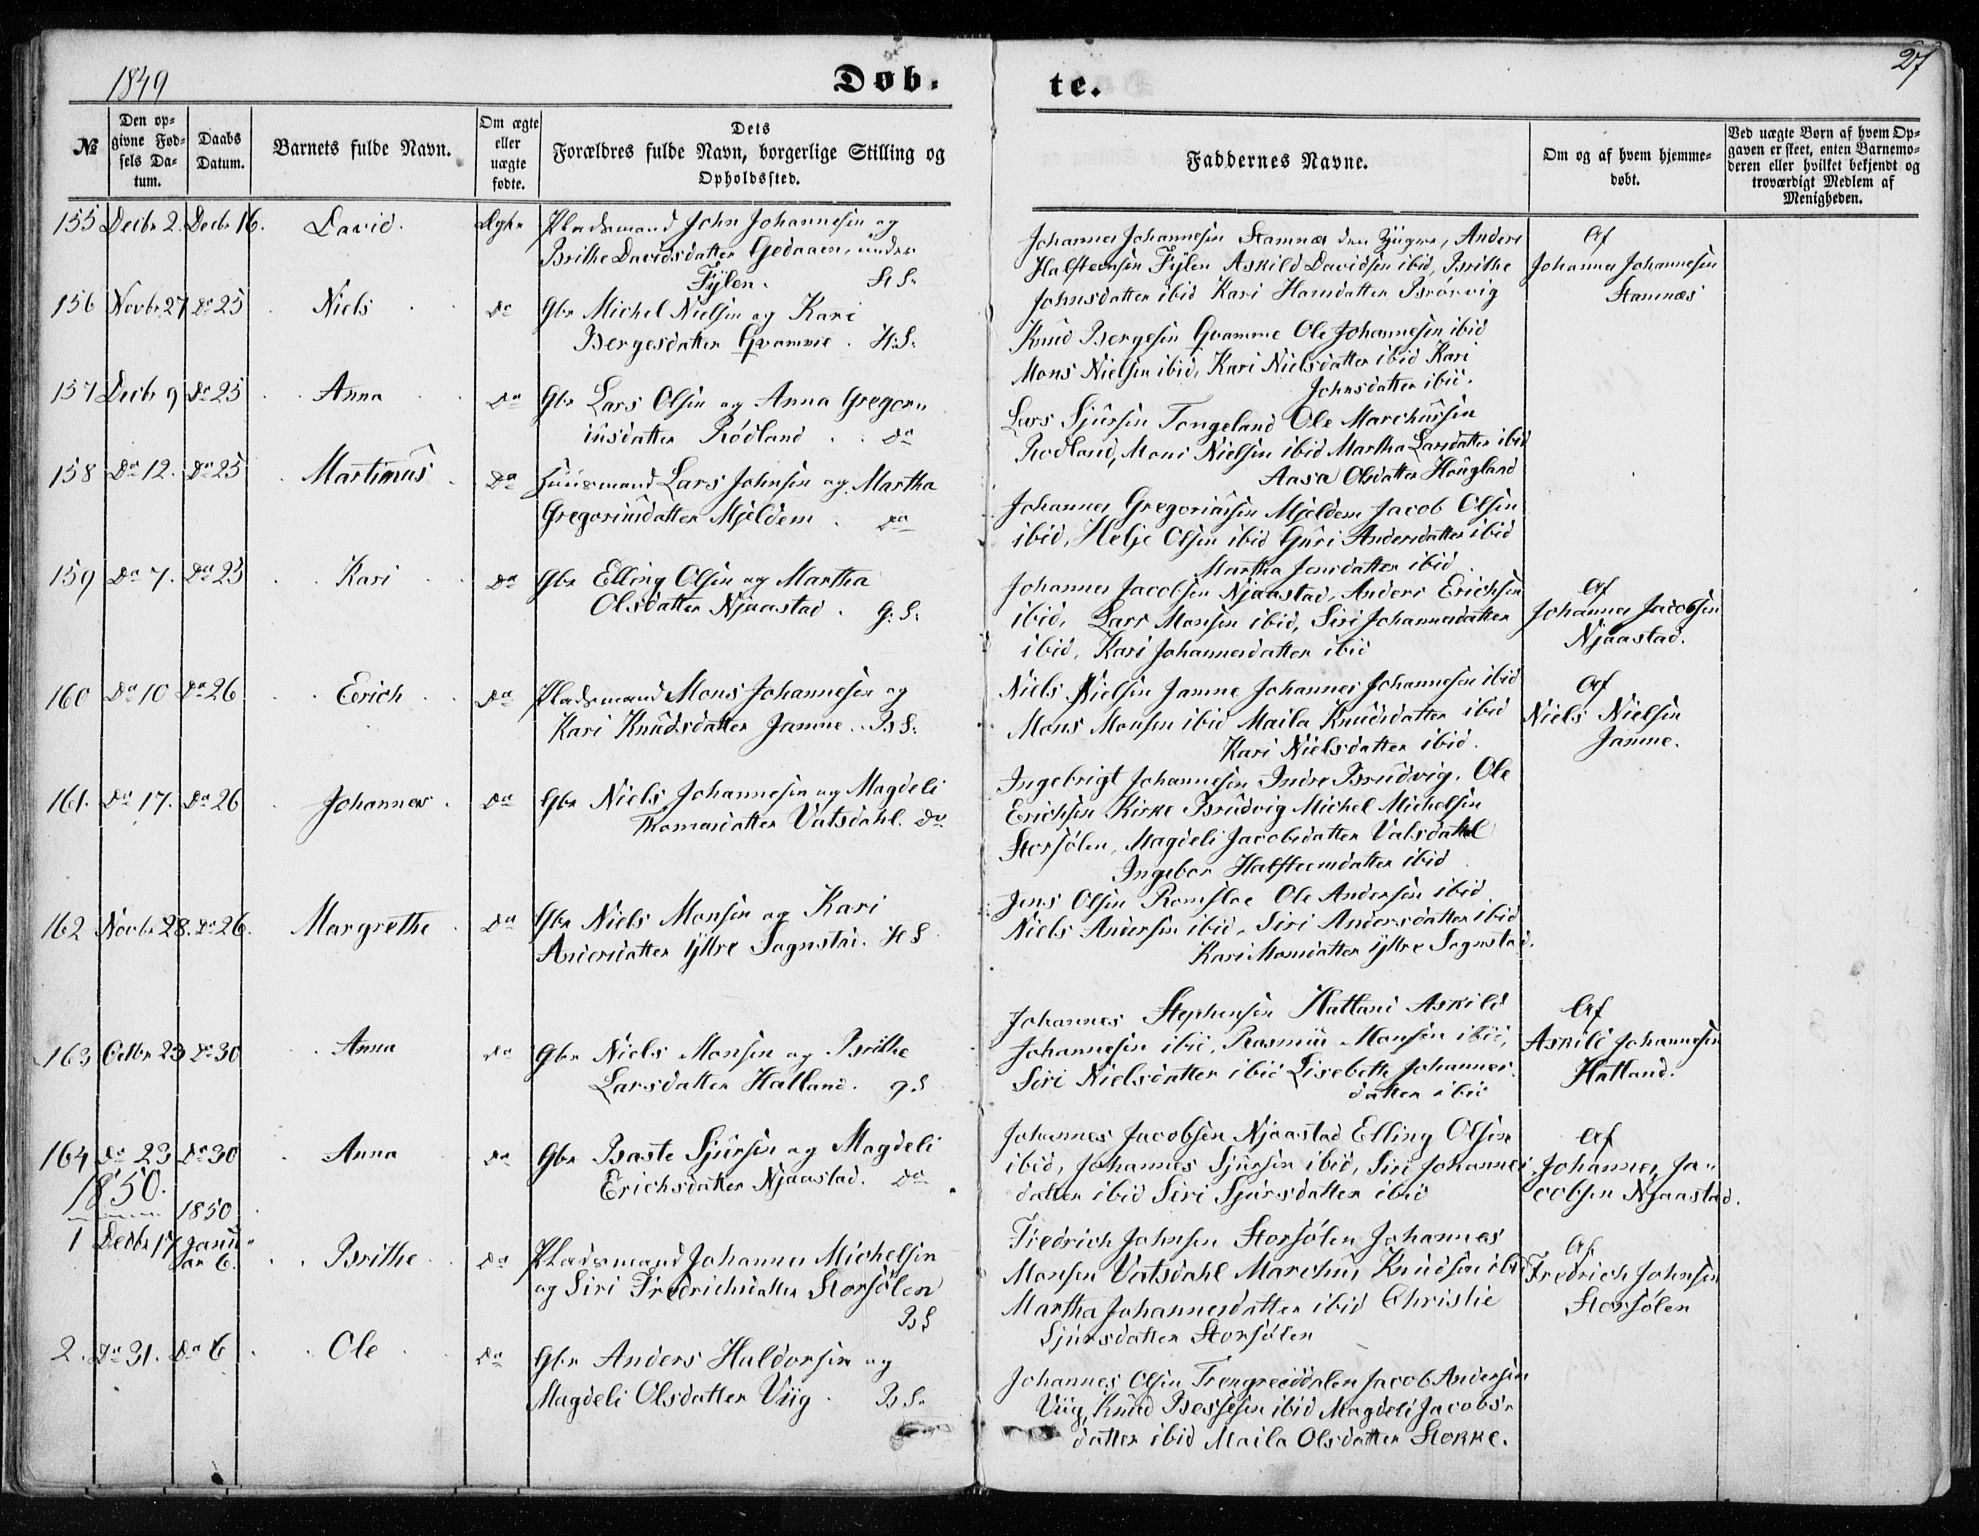 1849
Døb-
te.
27
№
Den op-
givne Fød-
sels Da-
tum.
Daabs
Datum.
Barnets fulde Navn.
Om ægte
eller
uægte
fødte.
Dets
Forældres fulde Navn, borgerlige Stilling og
Opholdssted.
Faddernes Navne.
Om og af hvem hjemme-
døbt.
Ved uægte Børn af hvem Op-
gaven er skeet, enten Barnemo-
deren eller hvilket bekjendt og
troværdigt Medlem af
Menigheden.
155 Decbr 2. Decbr 16. David.
Pladsmand John Johannesen og
Brithe Davidsdatter Gedaaen, under
Fylen. St S.
Johannes Johannesen Stamnæs den Yngre, Anders
Halsteensen Fylen Askild Davidsen ibid, Brithe
Johnsdatter ibid Kari Hansdatter Brørvig
Af
Johannes Johannesen
Stamnæs
156 Novbr 27 Do 25 Niels Do
Gbr Michel Nielsen og Kari
Bergesdatter Gvamme. H:S.
Knud Bergesen Gvamme Ole Johannesen ibid
Mons Nielsen ibid, Kari Nielsdatter ibid Kari
Johnsdatter ibid.
157 Decbr 9 Do 25 Anna Do
Gbr Lars Olsen og Anna Gregori-
iusdatter Rødland Do
Lars Sjursen Tongeland Ole Marchussen
Rødland, Mons Nielsen ibid Martha Larsdatter ibid
Aasa Olsdatter Hougland
158 Do 12. Do 25 Martinus Do
Huusmand Lars Johnsen og Martha
Gregoriusdatter Mjeldem Do
Johannes Gregoriussen Mjeldem Jacob Olsen
ibid, Helje Olsen ibid Guri Andersdatter ibid
Martha Jensdatter ibid.
159 Do 7. Do 25 Kari Do
Gbr Elling Olsen og Martha
Olsdatter Njaastad. G:S.
Johannes Jacobsen Njaastad, Anders Erichsen
ibid, Lars Monsen ibid, Siri Johannesdatter
ibid, Kari Johannesdatter ibid
Af
Johannes Jacobsen
Njaastad.
160 Do 10 Do 26 Erich Do
Pladsmand Mons Johannesen og
Kari Knudsdatter Jamne. B S.
Niels Nielsen Jamne Johannes Johannesen ibid
Mons Monsen ibid Maila Knudsdatter ibid
Kari Nielsdatter ibid.
Af
Niels Nielsen
Jamne.
161. Do 17. Do 26 Johannes Do
Gbr Niels Johannesen og Magdeli
Thomasdatter Vatsdahl. Do
Ingebrigt Johannesen Indre Brudvig. Ole
Erichsen Kirke Brudvig Michel Michelsen
Storsølen, Magdeli Jacobsdatter Valsdahl
Ingebor Halsteensdatter ibid
162 Novbr 28. Do 26. Margrethe Do
Gbr Niels Monsen og Kari
Andersdatter Yttre Sognstad. H S
Jens Olsen Romsloe Ole Andersen ibid.
Niels Andersen ibid. Siri Andersdatter ibid
Kari Monsdatter Yttre Sognstad.
163 Octbr 23 Do 30 Anna Do
Gbr Niels Monsen og Brithe
Larsdatter Hatland. G S
Johannes Stephensen Hatland Askild
Johannesen ibid, Rasmus Monsen ibid,
Siri Nielsdatter ibid Lisebette Johannes-
datter ibid
Af
Askild Johannesen
Hatland.
164 Do 23 Do 30 Anna Do
Gbr Baste Sjursen og Magdeli
Erichsdatter Njaastad. Do
Johannes Jacobsen Njaastad Elling Olsen
ibid, Johannes Sjursen ibid, Siri Johannes
datter ibid Siri Sjursdatter ibid
Af
Johannes Ja-
cobsen Njaastad.
1850.
1850
1 Decbr 17 Janu-
ar 6. Brithe Do
Pladsmand Johannes Michelsen
og Siri Fredrichsdatter Storsølen
B S
Fredrich Johnsen Storsølen Johannes
Monsen Vatsdahl Marchus Knudsen ibid
Martha Johannesdatter ibid Christie
Sjursdatter Storsølen
Af
Fredrich Johnsen
Storsølen
2. Do 31. Do 6 Ole Do
Gbr Anders Haldorsen og
Magdeli Olsdatter Viig. B S.
Johannes Olsen Trengreiddalen Jacob Andersen
Viig, Knud Bessesen ibid Magdeli Jacobs-
datter ibid Maila Olsdatter Stokke.